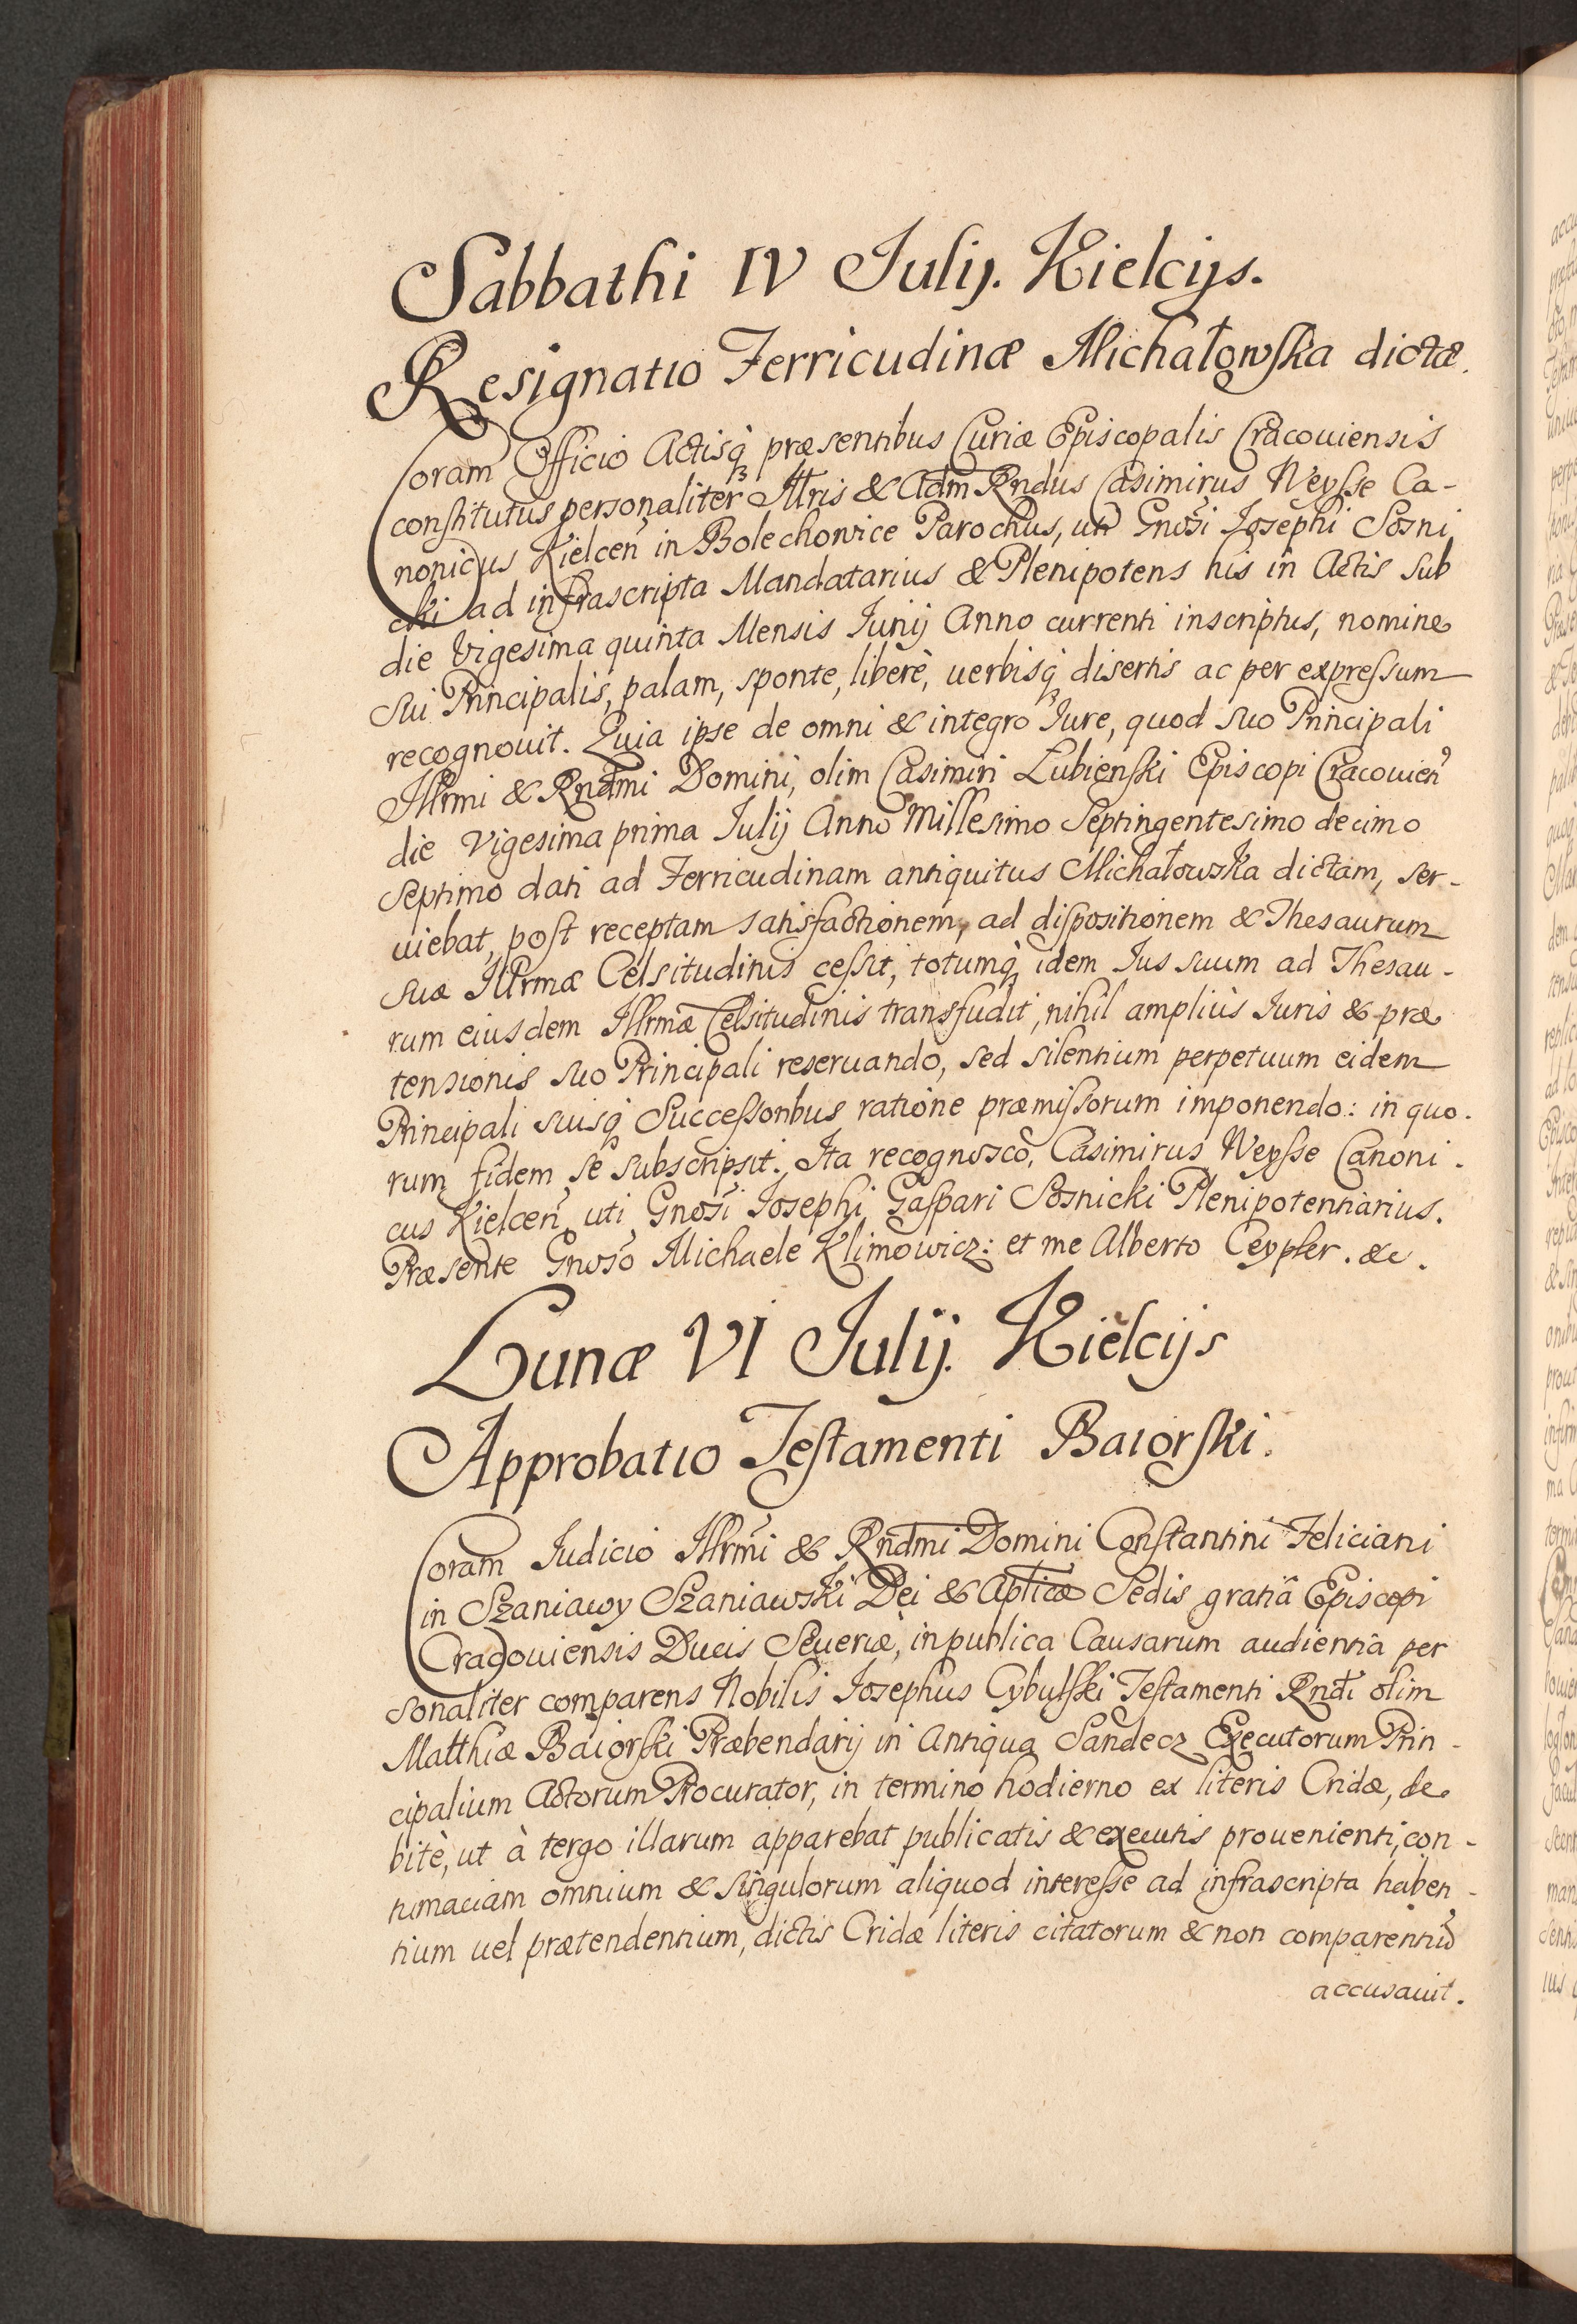 Sabbathi IV Julij. Kielcijs.
Resignatio Ferricudinæ Michałowska dictæ.
Coram Officio Actisq́ præsentibus Curiæ Episcopalis Cracouiensis
constitutus personaliter Illris & Adm Rndus Casimirus Weysse Ca-
nonicus Kielceń in Bolechowice Parochus, uti Gnosi Josephi Sosni
cki ad infrascripta Mandatarius & Plenipotens his in Actis sub
die Vigesima quinta Mensis Junij Anno currenti inscriptus, nomine
sui Principalis, palam, sponte, liberè, uerbisq́ disertis ac per expressum
recognouit. Quia ipse de omni & integro Jure, quod suo Principali
Illrmi & Rndmi Domini, olim Casimiri Łubienski Episcopi Cracouień
die Vigesima prima Julij Anno Millesimo Septingentesimo decimo
septimo dati ad Ferricudinam antiquitus Michałowska dictam, ser-
uiebat, post receptam satisfactionem, ad dispositionem & Thesaurum
suæ Illrmæ Celsitudinis cessit, totumq́ idem Jus suum ad Thesau-
rum eiusdem Illrmæ Celsitudinis transfudit, nihil amplius Juris & præ
tensionis suo Principali reseruando, sed silentium perpetuum eidem
Principali suisq́ Successoribus ratione præmissorum imponendo: in quo-
rum fidem se subscripsit. Ita recognosco, Casimirus Weysse Canoni-
cus Kielceń uti Gnosi Josephi Gaspari Sosnicki Plenipotentiarius.
Præsente Gnoso Michaele Klimowicz: et me Alberto Ceypler. &c.
Lunæ VI Julij. Kielcijs
Approbatio Testamenti Baiorski.
Coram Judicio Illrmi & Rndmi Domini Constantini Feliciani
in Szaniawy Szaniawski Dei & Aplicæ Sedis gratiâ Episcopi
Cracouiensis Ducis Seueriæ, in publica Causarum audientia per
sonaliter comparens Nobilis Josephus Cybulski Testamenti Rndi olim
Matthiæ Baiorski Præbendarij in Antiqua Sandecz Executorum Prin-
cipalium Actorum Procurator, in termino hodierno ex literis Cridæ, de
bitè, ut à tergo illarum apparebat publicatis & executis prouenienti, con-
tumaciam omnium & singulorum aliquod interesse ad infrascripta haben-
tium uel prætendentium, dictis Cridæ literis citatorum & non comparentiũ
accusauit.